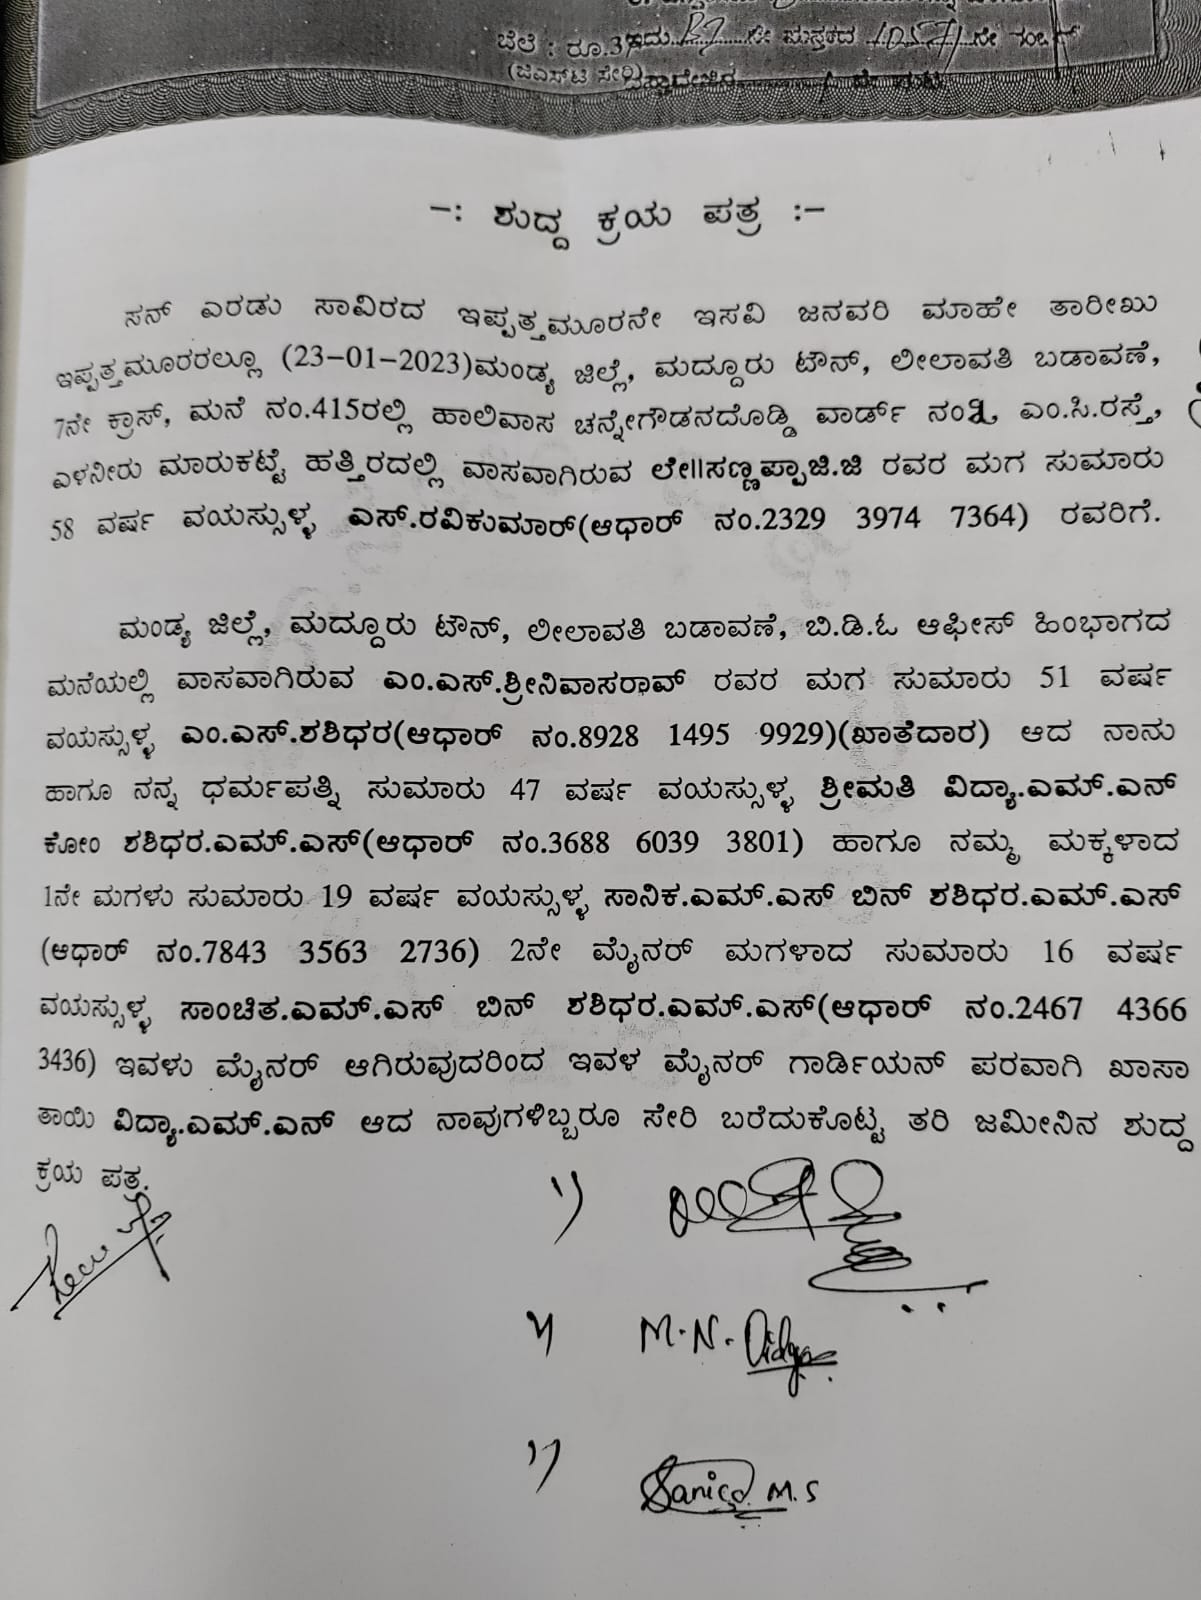 ಬೆಲೆ : ರೂ.3 ನೇ ಪುಸ್ತಕದ ನೇ
-: ಶುದ್ಧ ಕ್ರಯ ಪತ್ರ :-
ಸನ್ ಎರಡು ಸಾವಿರದ ಇಪ್ಪತ್ತಮೂರನೇ ಇಸವಿ ಜನವರಿ ಮಾಹೇ ತಾರೀಖು
ಇಪ್ಪತ್ತಮೂರರಲ್ಲೂ (23-01-2023)ಮಂಡ್ಯ ಜಿಲ್ಲೆ, ಮದ್ದೂರು ಟೌನ್, ಲೀಲಾವತಿ ಬಡಾವಣೆ,
7ನೇ ಕ್ರಾಸ್, ಮನೆ ನಂ.415ರಲ್ಲಿ ಹಾಲಿವಾಸ ಚನ್ನೇಗೌಡನದೊಡ್ಡಿ ವಾರ್ಡ್ ಎಂ.ಸಿ.ರಸ್ತೆ,
ಎಳನೀರು ಮಾರುಕಟ್ಟೆ ಹತ್ತಿರದಲ್ಲಿ ವಾಸವಾಗಿರುವ ಲೇ||ಸಣ್ಣಪ್ಪಾಜಿ.ಜಿ ರವರ ಮಗ ಸುಮಾರು
58 ವರ್ಷ ವಯಸ್ಸುಳ್ಳ ಎಸ್.ರವಿಕುಮಾರ್(ಆಧಾರ್ ನಂ.2329 3974 7364) ರವರಿಗೆ.
ಮಂಡ್ಯ ಜಿಲ್ಲೆ, ಮದ್ದೂರು ಟೌನ್, ಲೀಲಾವತಿ ಬಡಾವಣೆ, ಬಿ.ಡಿ.ಓ ಆಫೀಸ್ ಹಿಂಭಾಗದ
ಮನೆಯಲ್ಲಿ ವಾಸವಾಗಿರುವ ಎಂ.ಎಸ್.ಶ್ರೀನಿವಾಸರಾವ್ ರವರ ಮಗ ಸುಮಾರು 51 ವರ್ಷ
ವಯಸ್ಸುಳ್ಳ ಎಂ.ಎಸ್.ಶಶಿಧರ(ಆಧಾರ್ ನಂ.8928 1495 9929)(ಖಾತೆದಾರ) ಆದ ನಾನು
ಹಾಗೂ ನನ್ನ ಧರ್ಮಪತ್ನಿ ಸುಮಾರು 47 ವರ್ಷ ವಯಸ್ಸುಳ್ಳ ಶ್ರೀಮತಿ ವಿದ್ಯಾ.ಎಮ್.ಎನ್
ಕೋಂ ಶಶಿಧರ.ಎಮ್.ಎಸ್(ಆಧಾರ್ ನಂ.3688 6039 3801) ಹಾಗೂ ನಮ್ಮ ಮಕ್ಕಳಾದ
1ನೇ ಮಗಳು ಸುಮಾರು 19 ವರ್ಷ ವಯಸ್ಸುಳ್ಳ ಸಾನಿಕ.ಎಮ್.ಎಸ್ ಬಿನ್ ಶಶಿಧರ.ಎಮ್.ಎಸ್
(ಆಧಾರ್ ನಂ.7843 3563 2736) 2ನೇ ಮೈನರ್ ಮಗಳಾದ ಸುಮಾರು 16 ವರ್ಷ
ವಯಸ್ಸುಳ್ಳ ಸಾಂಚಿತ.ಎಮ್.ಎಸ್ ಬಿನ್ ಶಶಿಧರ.ಎಮ್.ಎಸ್(ಆಧಾರ್ ನಂ.2467 4366
3436) ಇವಳು ಮೈನರ್ ಆಗಿರುವುದರಿಂದ ಇವಳ ಮೈನರ್ ಗಾರ್ಡಿಯನ್ ಪರವಾಗಿ ಖಾಸಾ
ತಾಯಿ ವಿದ್ಯಾ.ಎಮ್.ಎನ್ ಆದ ನಾವುಗಳಿಬ್ಬರೂ ಸೇರಿ ಬರೆದುಕೊಟ್ಟ ತರಿ ಜಮೀನಿನ ಶುದ್ದ
ಕ್ರಯ ಪತ್ರ.
M.N. Vidya
Sanica M.S